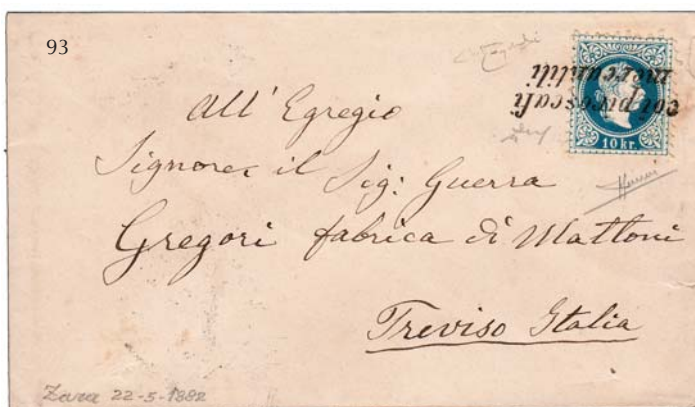 93
coi piroscafi
mercantili
10 kr.
All' Egregio
Signore il Sig: Guerra
Gregori fabrica di Mattoni
Treviso Italia
Zara 22-5-1882